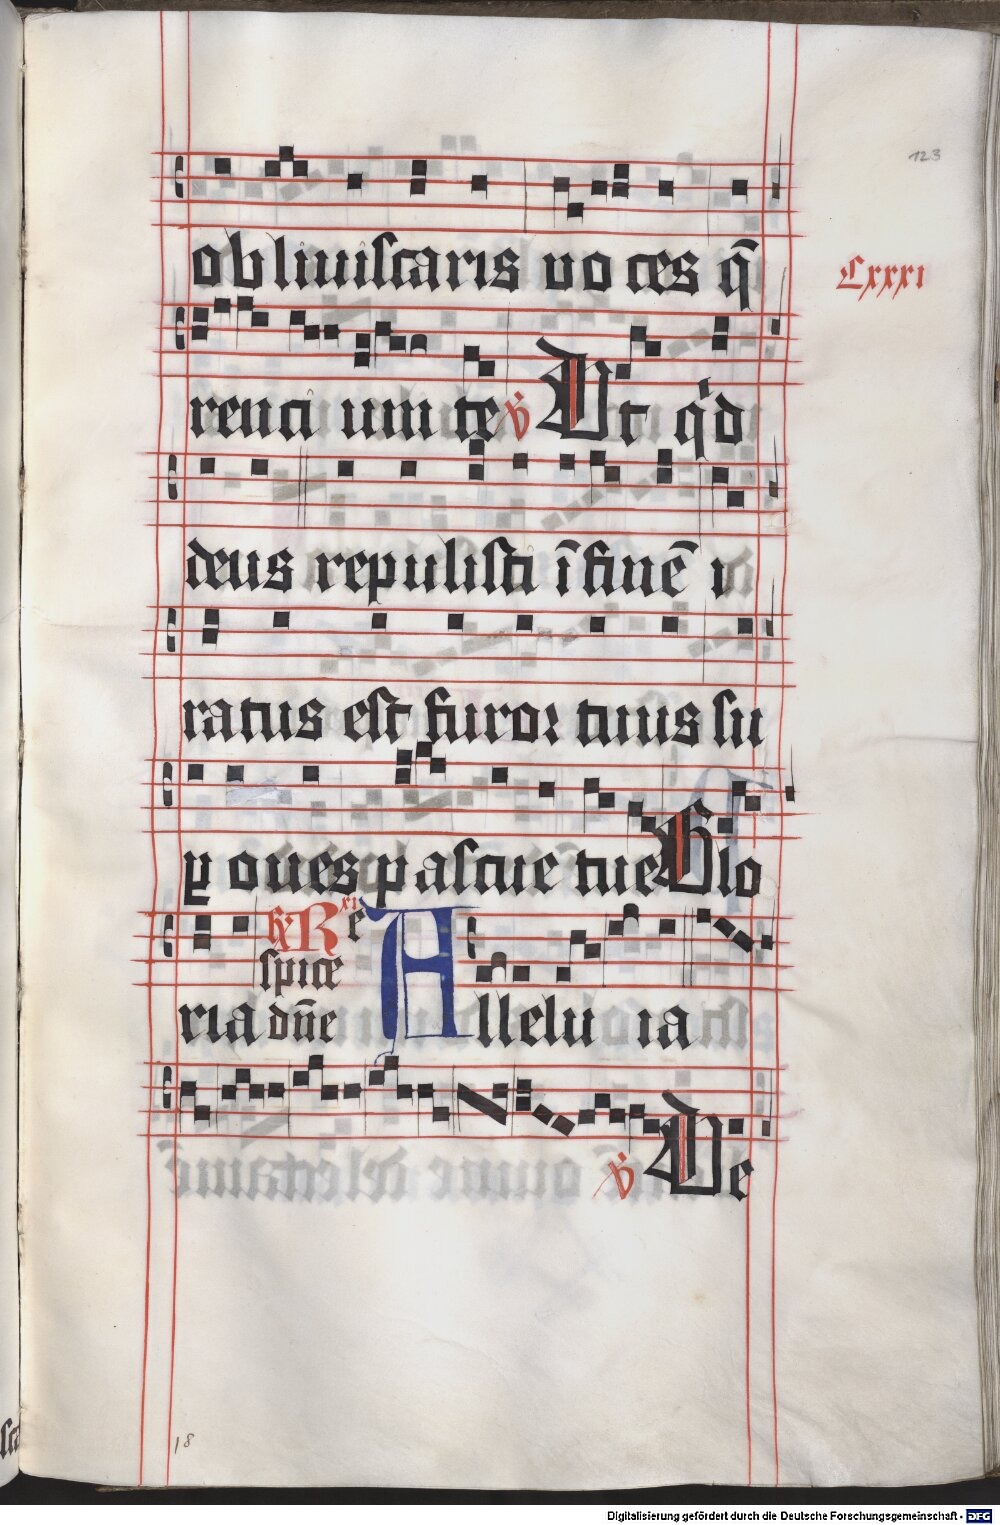 123
obliuiscaris uo ces q̄
Cxxxi
renti um te v̇ Ut qd
deus repulisti ī finē i
ratus est furor tuus su
p oues pascue tue Glo
xi
Gr. Re
spice
ria dn̄e Allelu ia
v̇ De
18
Digitalisierung gefördert durch die Deutsche Forschungsgemeinschaft - DFG